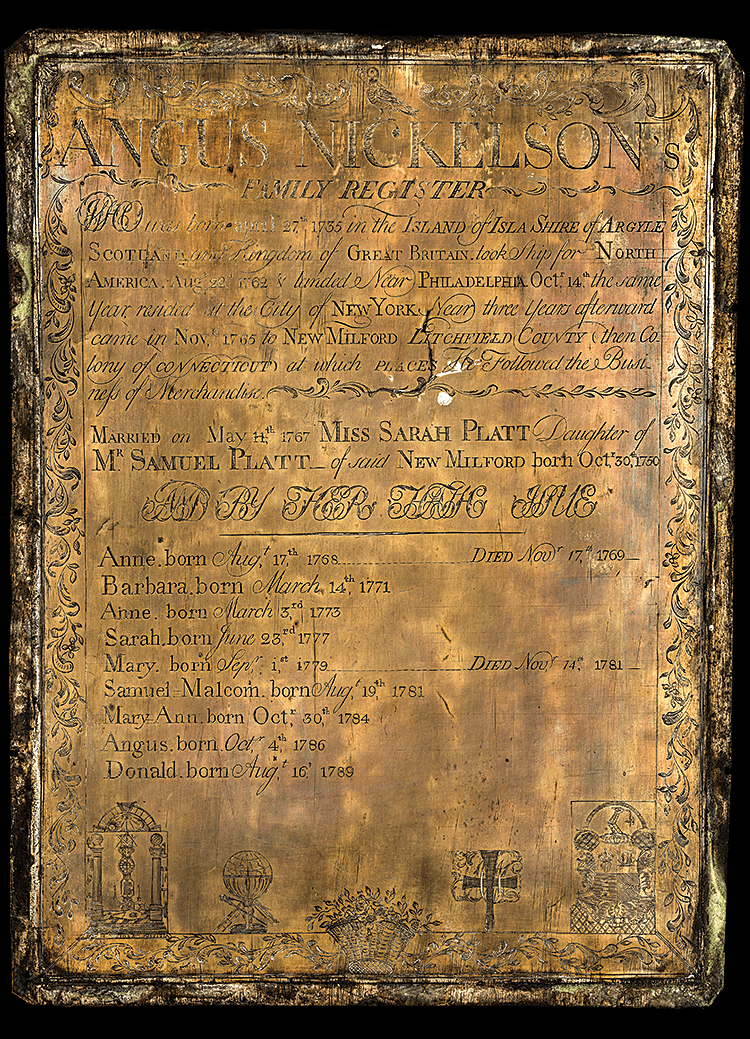 ANGUS NICKELSON's
FAMILY REGISTER
WHO was born april 27th 1735 in the ISLAND of ISLA SHIRE of ARGYLE
SCOTLAND and Kingdom of GREAT BRITAIN. took Ship for NORTH
AMERICA. Aug. 22d 1762 & landed Near PHILADELPHIA Octr. 14th the same
Year resided at the City of NEW YORK Near three Years afterward
came in Novr. 1765 to NEW MILFORD LITCHFIELD COUNTY (then Co-
lony of CONNECTICUT) at which PLACES He Followed the Busi-
ness of Merchandise.
MARRIED on May 11th 1767 MISS SARAH PLATT Daughter of
Mr SAMUEL PLATT of said NEW MILFORD born Octr. 30th 1750
AND BY HER HATH ISSUE
Anne. born Augt. 17th 1768 DIED Novr. 17th 1769
Barbara. born March 14th 1771
Anne. born March 3rd 1773
Sarah. born June 23rd 1777
Mary. born Sepr. 1st 1779 DIED Novr. 14th 1781
Samuel-Malcom. born Augt. 19th 1781
Mary-Ann. born Octr. 30th 1784
Angus. born Octr. 4th 1786
Donald. born Augt. 16t 1789